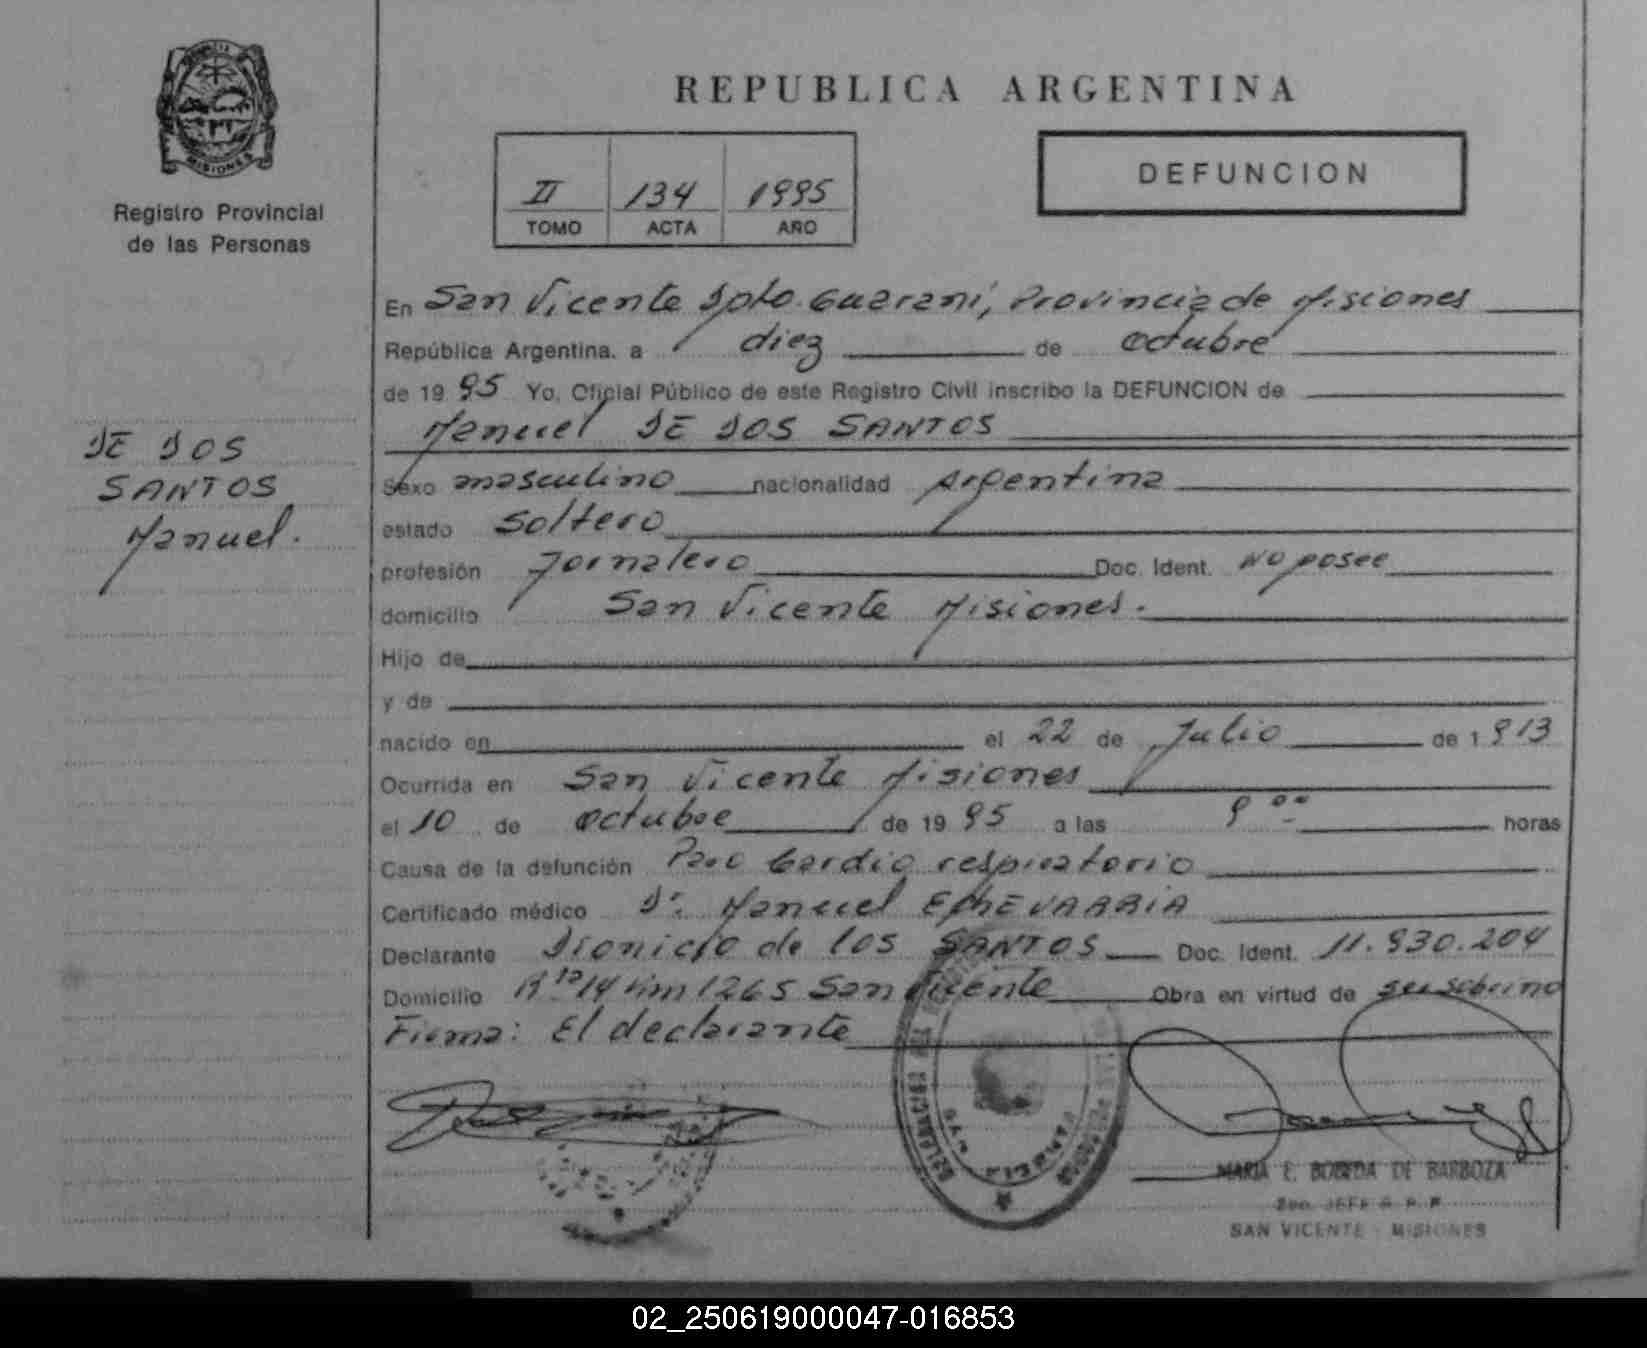 MISIONES
Registro Provincial
de las Personas
REPUBLICA ARGENTINA
II 134 1995
TOMO ACTA AÑO
DEFUNCION
DE LOS
SANTOS
Manuel.
En San Vicente Dpto. Guaraní, Provincia de Misiones
República Argentina. a diez de octubre
de 1995 Yo, Oficial Público de este Registro Civil inscribo la DEFUNCION de
Manuel DE LOS SANTOS
Sexo masculino nacionalidad Argentina
estado Soltero
profesión Jornalero Doc. Ident. No posee
domicilio San Vicente Misiones.
Hijo de
y de
nacido en el 22 de Julio de 1913
Ocurrida en San Vicente Misiones
el 10 de octubre de 1995 a las 9 00 horas
Causa de la defunción Paro Cardio respiratorio
Certificado médico Dr. Manuel ECHEVARRIA
Declarante Dionicio de los SANTOS Doc. Ident. 11.930.204
Domicilio R. 14 Km 1265 San Vicente Obra en virtud de su sobrino
Firma: El declarante
MARIA E. BOBEDA DE BARBOZA
SAN VICENTE - MISIONES
02_250619000047-016853